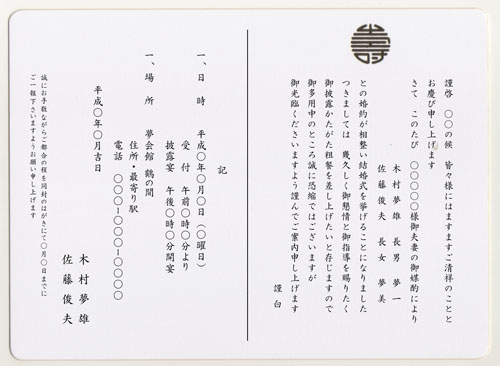 壽
謹啓　○○の候　皆々様にはますますご清祥のことと
お慶び申し上げます
さて　このたび　○○○○○様御夫妻の御媒酌により
木村夢雄　長男　夢一
佐藤俊夫　長女　夢美
との婚約が相整い結婚式を挙げることになりました
つきましては　幾久しく御懇情と御指導を賜りたく
御披露かたがた粗餐を差し上げたいと存じますので
御多用中のところ誠に恐縮ではございますが
御光臨くださいますよう謹んでご案内申し上げます
謹白
記
一、日　時　平成○年○月○日（○曜日）
受　付　午前○時○分より
披露宴　午後○時○分開宴
一、場　所　夢会館　鶴の間
住所・最寄り駅
電話　○○○ー○○○ー○○○○
平成○年○月吉日
木村夢雄
佐藤俊夫
誠にお手数ながらご都合の程を同封のはがきにて○月○日までに
ご一報下さいますようお願い申し上げます